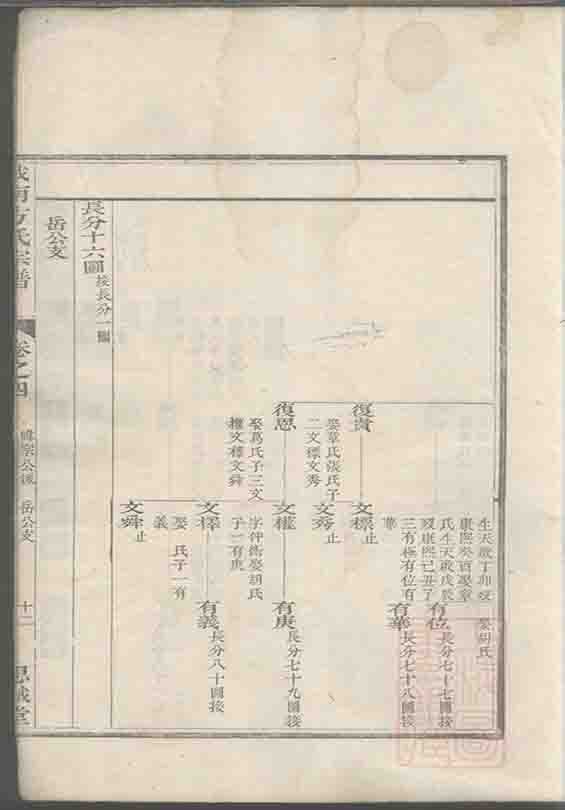 長分十六圖 接長分一圖
岳公支
復貴
娶章氏張氏子
二文標文秀
復恩
娶葛氏子三文
權文標文舜
文標
生天啟丁卯歿
康熙癸酉娶章
氏生天啟戊辰
歿康熙己丑子
三有極有位有
華
文秀 止
文權
字仲衡娶胡氏
子一有庚
文擇
娶 氏子一有
義
文舜 止
娶胡氏
有位 長分七十七圖接
有華 長分七十八圖接
有庚 長分七十九圖接
有義 長分八十圖接
方氏宗譜
卷之四
岳公支
十二
思誠堂